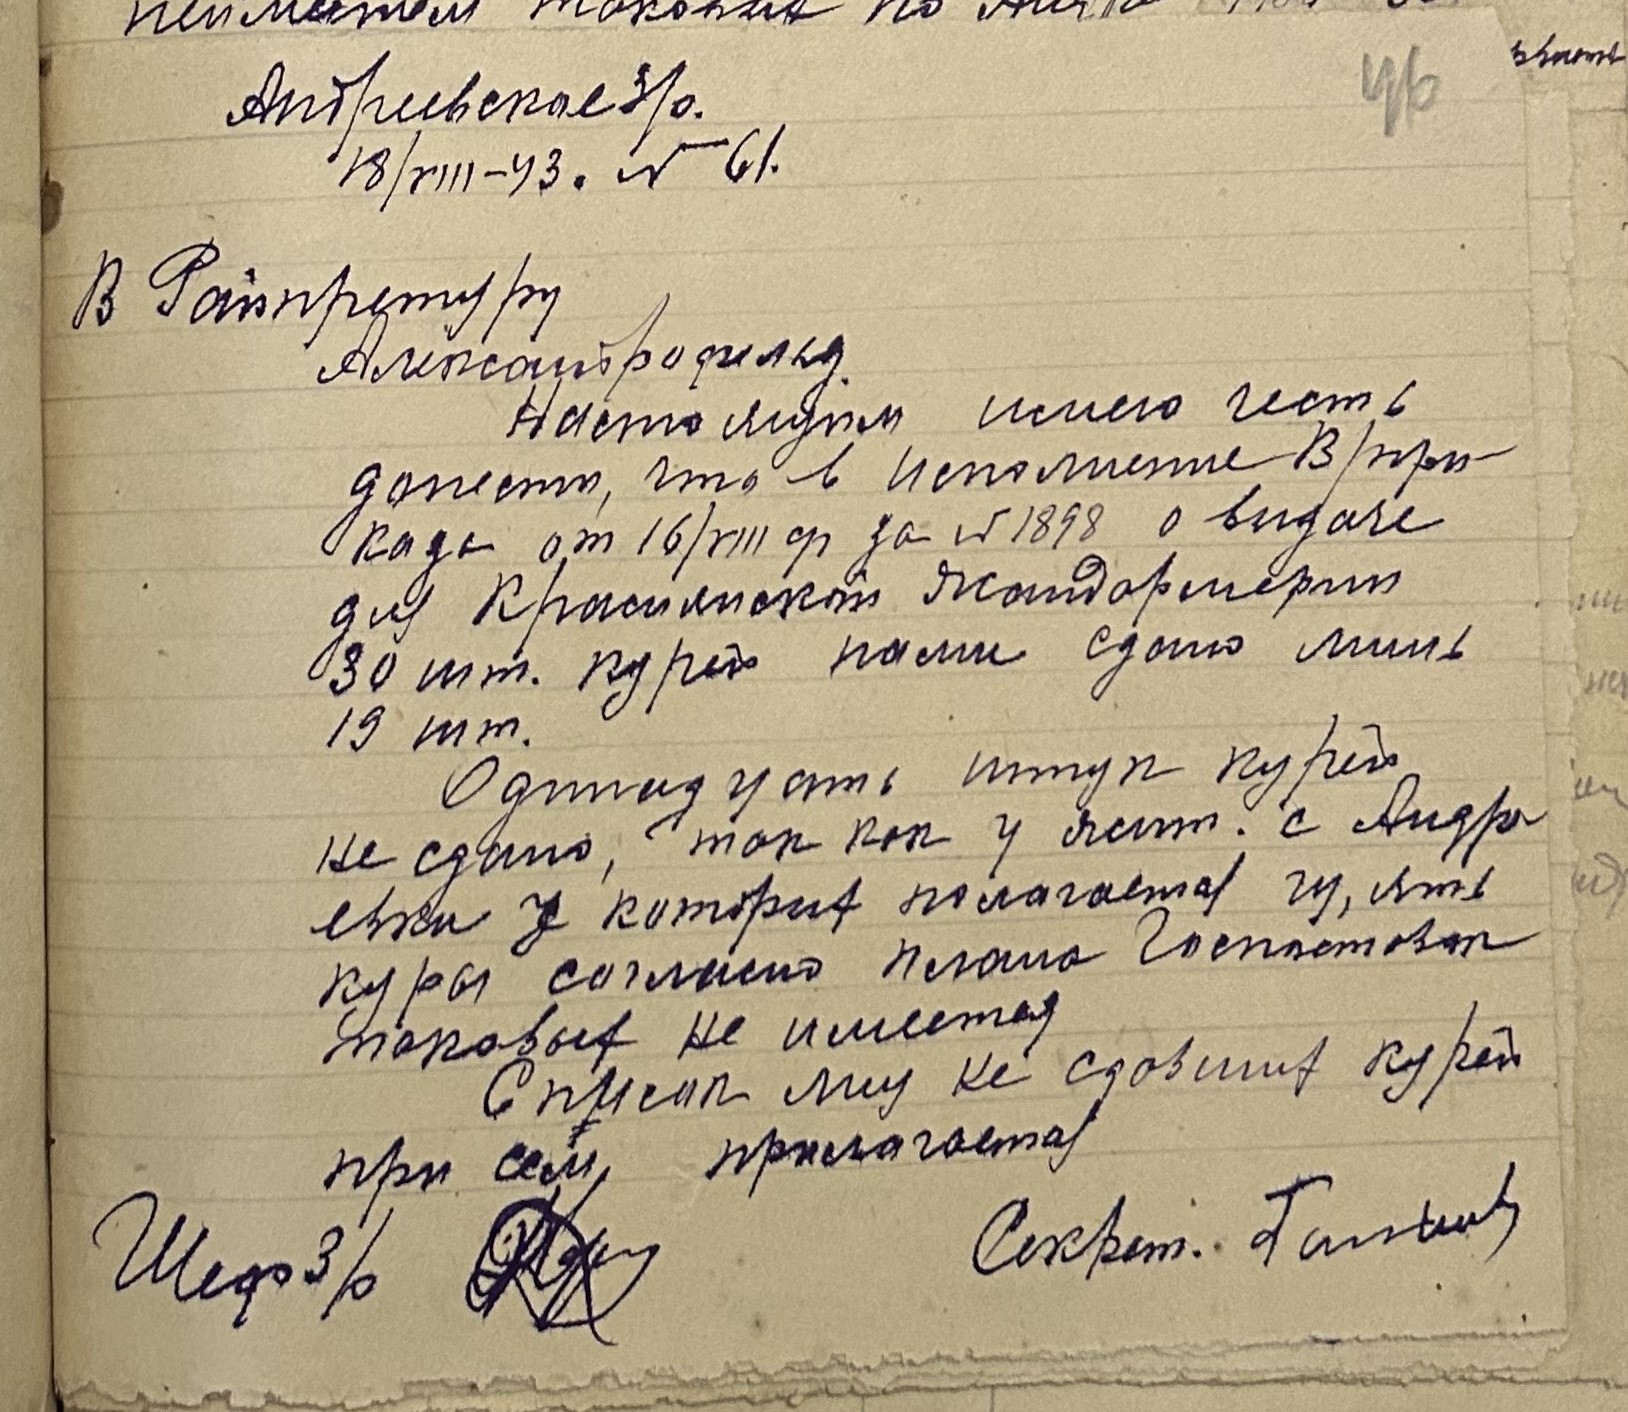 неимением таковых по
Андреевское З/о.
18/VIII–43. № 61.
В Райпретуру
Александрофельд.
Настоящим имею честь
донести, что в исполнение В/при-
каза от 16/VIII ф за № 1898 о выдаче
для Краснянской Жандармерии
30 шт. курей нами сдано лишь
19 шт.
Одинадцать штук курей
не сдано, так как у жит. с Андре
евки у которых полагается
куры согласно плана Госпоставок
таковых не имеется
Список лиц не сдавших курей
при сем, прилагается
Шеф З/о Секрет.